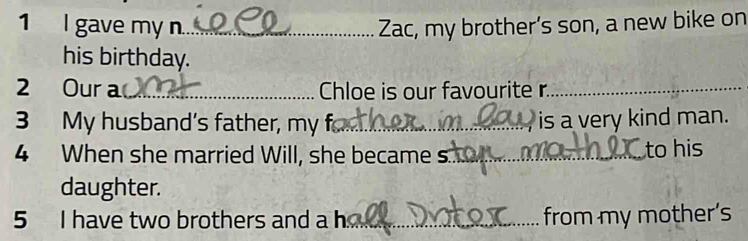 1 I gave my niece Zac, my brother's son, a new bike on
his birthday.
2 Our aunt Chloe is our favourite r
3 My husband's father, my father in law, is a very kind man.
4 When she married Will, she became step mather to his
daughter.
5 I have two brothers and a half from my mother's